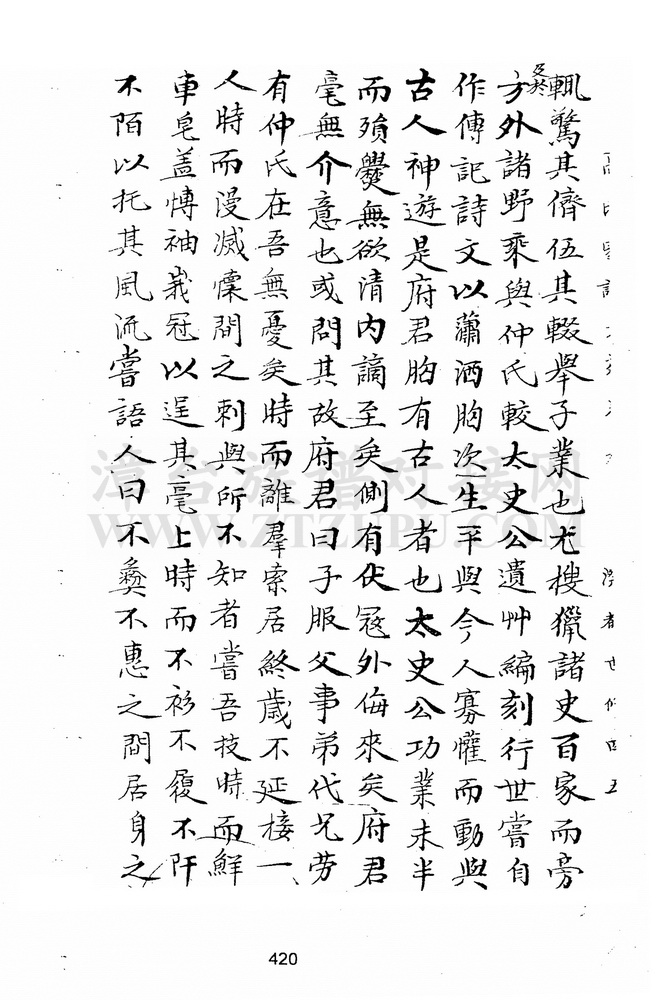 輒驚其儕伍其輟舉子業也尤搜獵諸史百家而旁
及於方外諸野乘與仲氏較太史公遺艸編刻行世嘗自
作傳記詩文以蕭洒胸次生平與今人寡懽而動與
古人神遊是府君胸有古人者也太史公功業未半
而殞爨無欲清內謫至矣側有伏寇外侮來矣府君
毫無介意也或問其故府君曰子服父事弟代兄劳
有仲氏在吾無憂矣時而離羣索居終歲不延接一
人時而漫滅懷間之刺與所不知者嘗吾技時而鮮
車皂蓋慱袖峩冠以逞其毫上時而不衫不履不阡
不陌以托其風流嘗語人曰不夷不惠之間居身之
漳台族谱对接网
WWW.ZTZUPU.COM
420